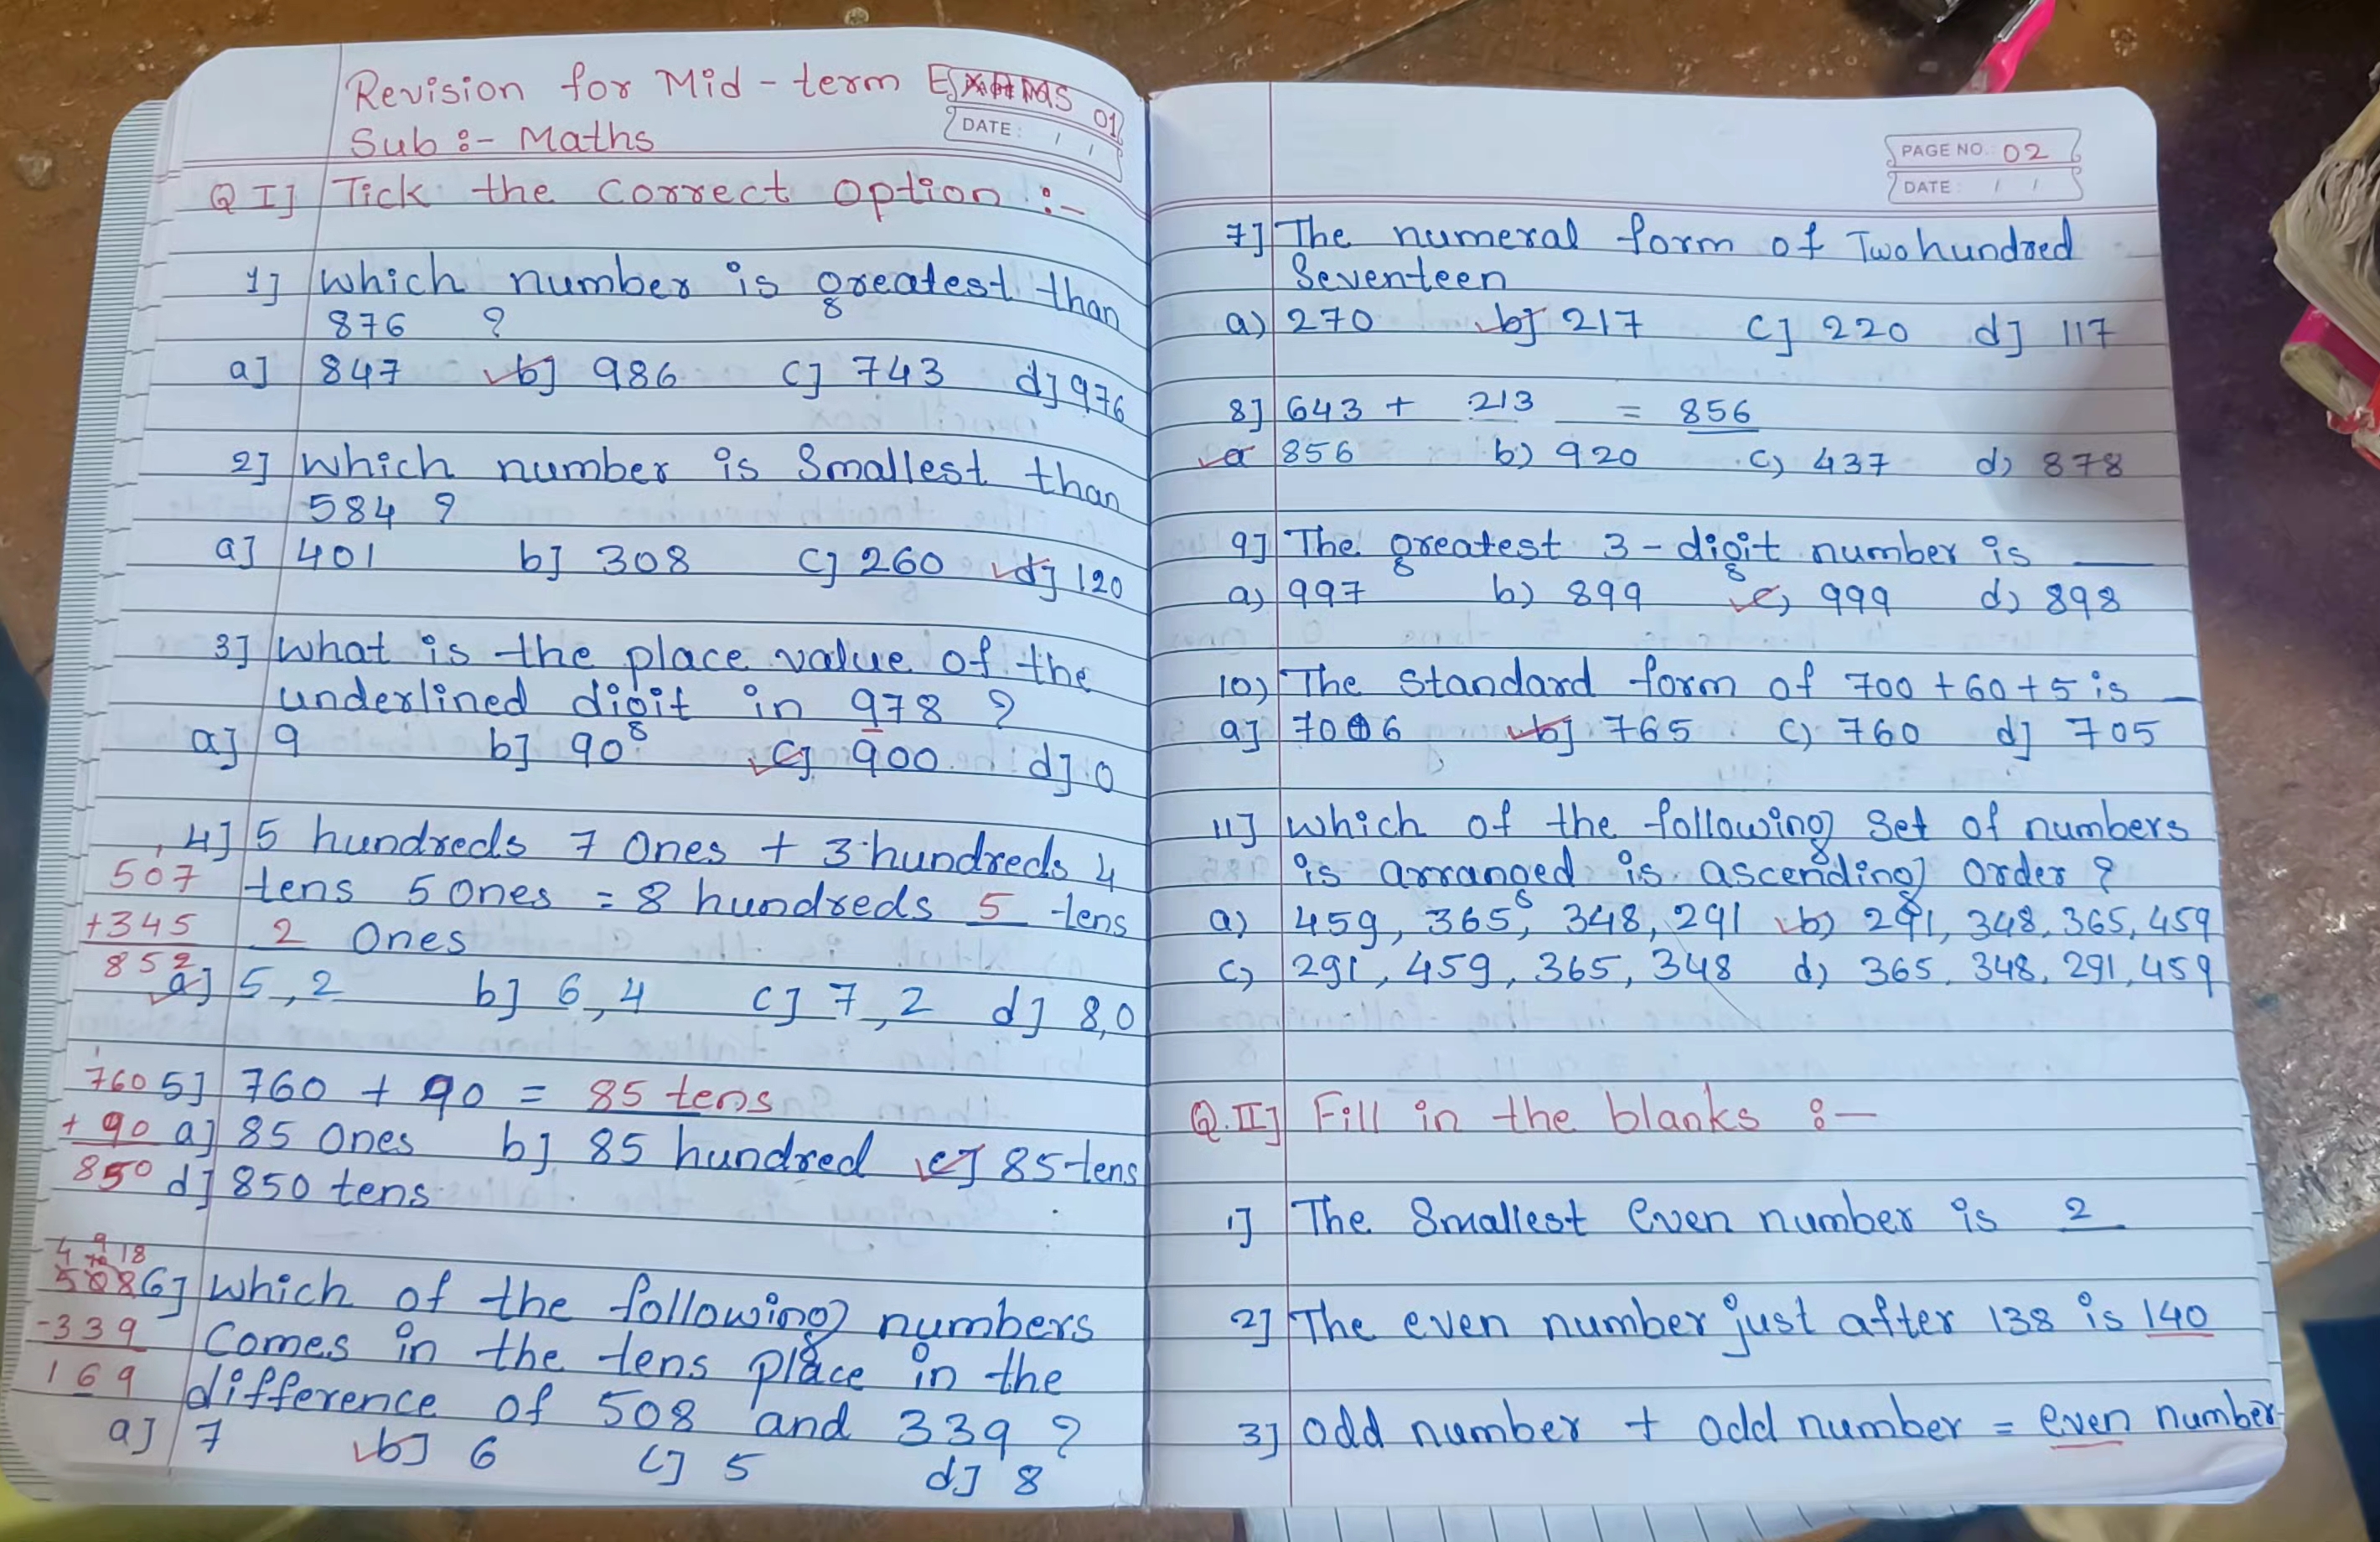 Revision for Mid-term Exams 01
DATE: / /
Sub :- Maths
Q I] Tick the correct option :-
1] Which number is greatest than
876 ?
a] 847 b] 986 c] 743 d] 976
2] Which number is Smallest than
584 ?
a] 401 b] 308 c] 260 d] 120
3] What is the place value of the
underlined digit in 978 ?
a] 9 b] 90 c] 900 d] 0
4] 5 hundreds 7 Ones + 3 hundreds 4
507 tens 5 ones = 8 hundreds 5 tens
+345 2 Ones
852
a] 5,2 b] 6,4 c] 7,2 d] 8,0
1
760 5] 760 + 90 = 85 tens
+ 90 a] 85 Ones b] 85 hundred c] 85 tens
850 d] 850 tens
4 9 18
10
508 6] Which of the following numbers
-339 Comes in the tens place in the
169 difference of 508 and 339 ?
a] 7 b] 6 c] 5 d] 8
PAGE NO.: 02
DATE: / /
7] The numeral form of Two hundred
Seventeen
a) 270 b] 217 c] 220 d] 117
8] 643 + 213 = 856
a 856 b) 920 c) 437 d) 878
9] The greatest 3-digit number is ___
a) 997 b) 899 c) 999 d) 898
10) The standard form of 700+60+5 is _
a] 7006 b] 765 c) 760 d] 705
11] Which of the following set of numbers
is arranged is ascending order ?
a) 459, 365, 348, 291 b) 291, 348, 365, 459
c) 291, 459, 365, 348 d) 365, 348, 291, 459
Q.II] Fill in the blanks :-
1] The Smallest even number is 2
2] The even number just after 138 is 140
3] odd number + odd number = even number